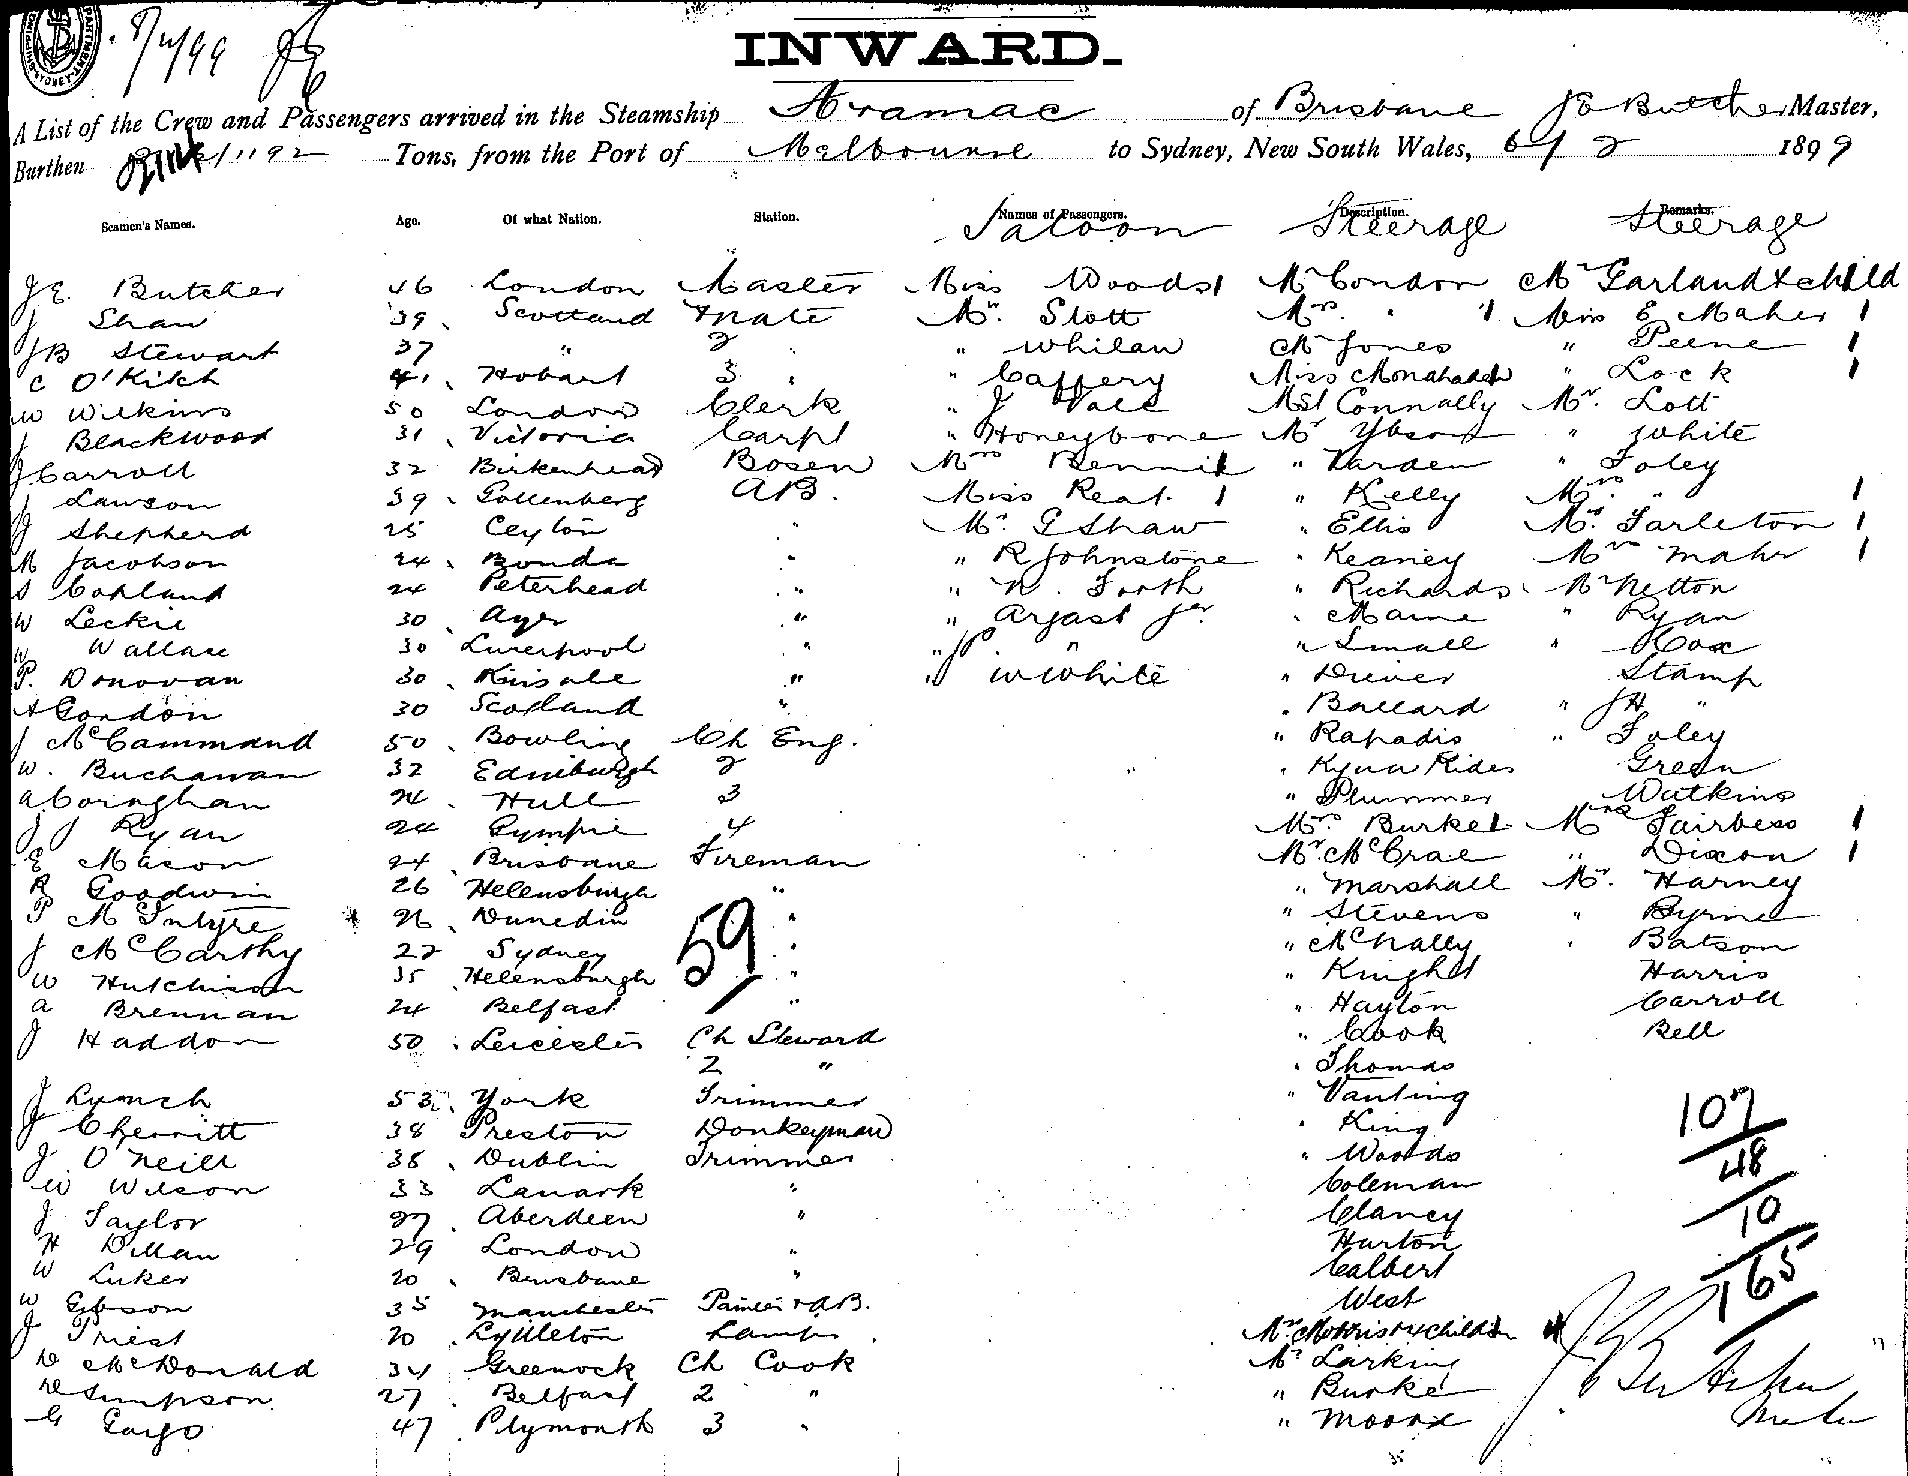 8/2/99 JE
INWARD.
A List of the Crew and Passengers arrived in the Steamship Aramac of Brisbane JE Butcher Master,
Burthen Tons, from the Port of Melbourne to Sydney, New South Wales, 6/2 1899
Seamen's Names. Age. Of what Nation. Station. Names of Passengers. Description. Remarks.
Saloon Steerage Steerage
J E. Butcher 46 London Master Miss Woods 1 Mr Condon Mr Garland & child
J Shaw 39 Scotland Mate Mr. Slott Mrs. " 1 Miss E Maher 1
J B Stewart 37 " 2 " " Whilan Mr Jones " Peene 1
C O'Kitch 41 Hobart 3 " " Caffery Miss " Lock 1
W Wilkins 50 London Clerk " J Vale Mst Connally Mr. Lott
J Blackwood 31 Victoria Carpt " Honeybone Mr " White
J Carroll 32 Birkenhead Bosen Mrs 1 " Varden " Foley
J Lawson 39 Gottenberg AB. Miss Reat. 1 " Kelly Mrs. " 1
J Shepherd 25 Ceylon " Mr. G Shaw " Ellis Mrs. Tarleton 1
M Jacobson 24 " " R Johnstone " Keaney Mrs Mahr 1
S Copland 24 Peterhead " " N. Forth " Richards Mr Netton
W Leckie 30 Ayr " " Argast Jnr " Maine " Ryan
W Wallace 30 Liverpool " " P. " " Small " Cox
P. Donovan 30 Kinsale " " W White " Driver Stamp
A Gordon 30 Scotland " " Ballard " J H "
J McCammand 50 Bowling Ch Eng. " Rapadis " Foley
W. Buchanan 32 Edinburgh 2 " Kyna Kides Green
A Cornghan 24 Hull 3 " Plummer Watkins
J J Ryan 24 Gympie 4 Mrs. Burke 1 Mrs Fairbess 1
E Mason 24 Brisbane Fireman Mr. McCrae " Dixon 1
R Goodwin 26 Helensburgh " " Marshall Mr. Harney
P McIntyre 26 Dunedin " " Stevens " Byrne
J McCarthy 22 Sydney " " McNally " Batson
59
W Hutchison 35 Helensburgh " " Knight Harris
A Brennan 24 Belfast " " Hayton Carroll
J Haddon 50 Leicester Ch Steward " Cook Bell
2 " " Thomas
J Lynch 53 York Trimmer " Vanting
J Cherritt 38 Preston Donkeyman " King
107
J O'Neill 38 Dublin Trimmer " Woods
48
W Wilson 33 Lanark " Coleman
J Taylor 27 Aberdeen " Clancy
10
H Dillan 29 London " Hurton
W Luker 20 Brisbane " Calbert
165
W Gibson 35 Manchester Painter & AB. West
J Priest 20 Lyttleton Lamps Mrs Morris & 4 children 4
D McDonald 34 Greenock Ch Cook Mr Larking
W Simpson 27 Belfast 2 " " Burke
J E Butcher
G Gargo 47 Plymouth 3 " " Moore
Master